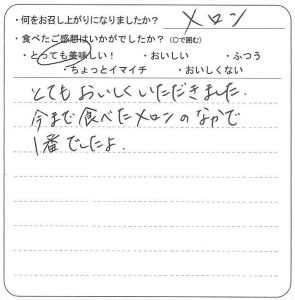 ・何をお召し上がりになりましたか？ メロン
・食べたご感想はいかがでしたか？（○で囲む）
・とっても美味しい！ ・おいしい ・ふつう
・ちょっとイマイチ ・おいしくない
とてもおいしくいただきました.
今まで食べたメロンのなかで
1番でしたよ.